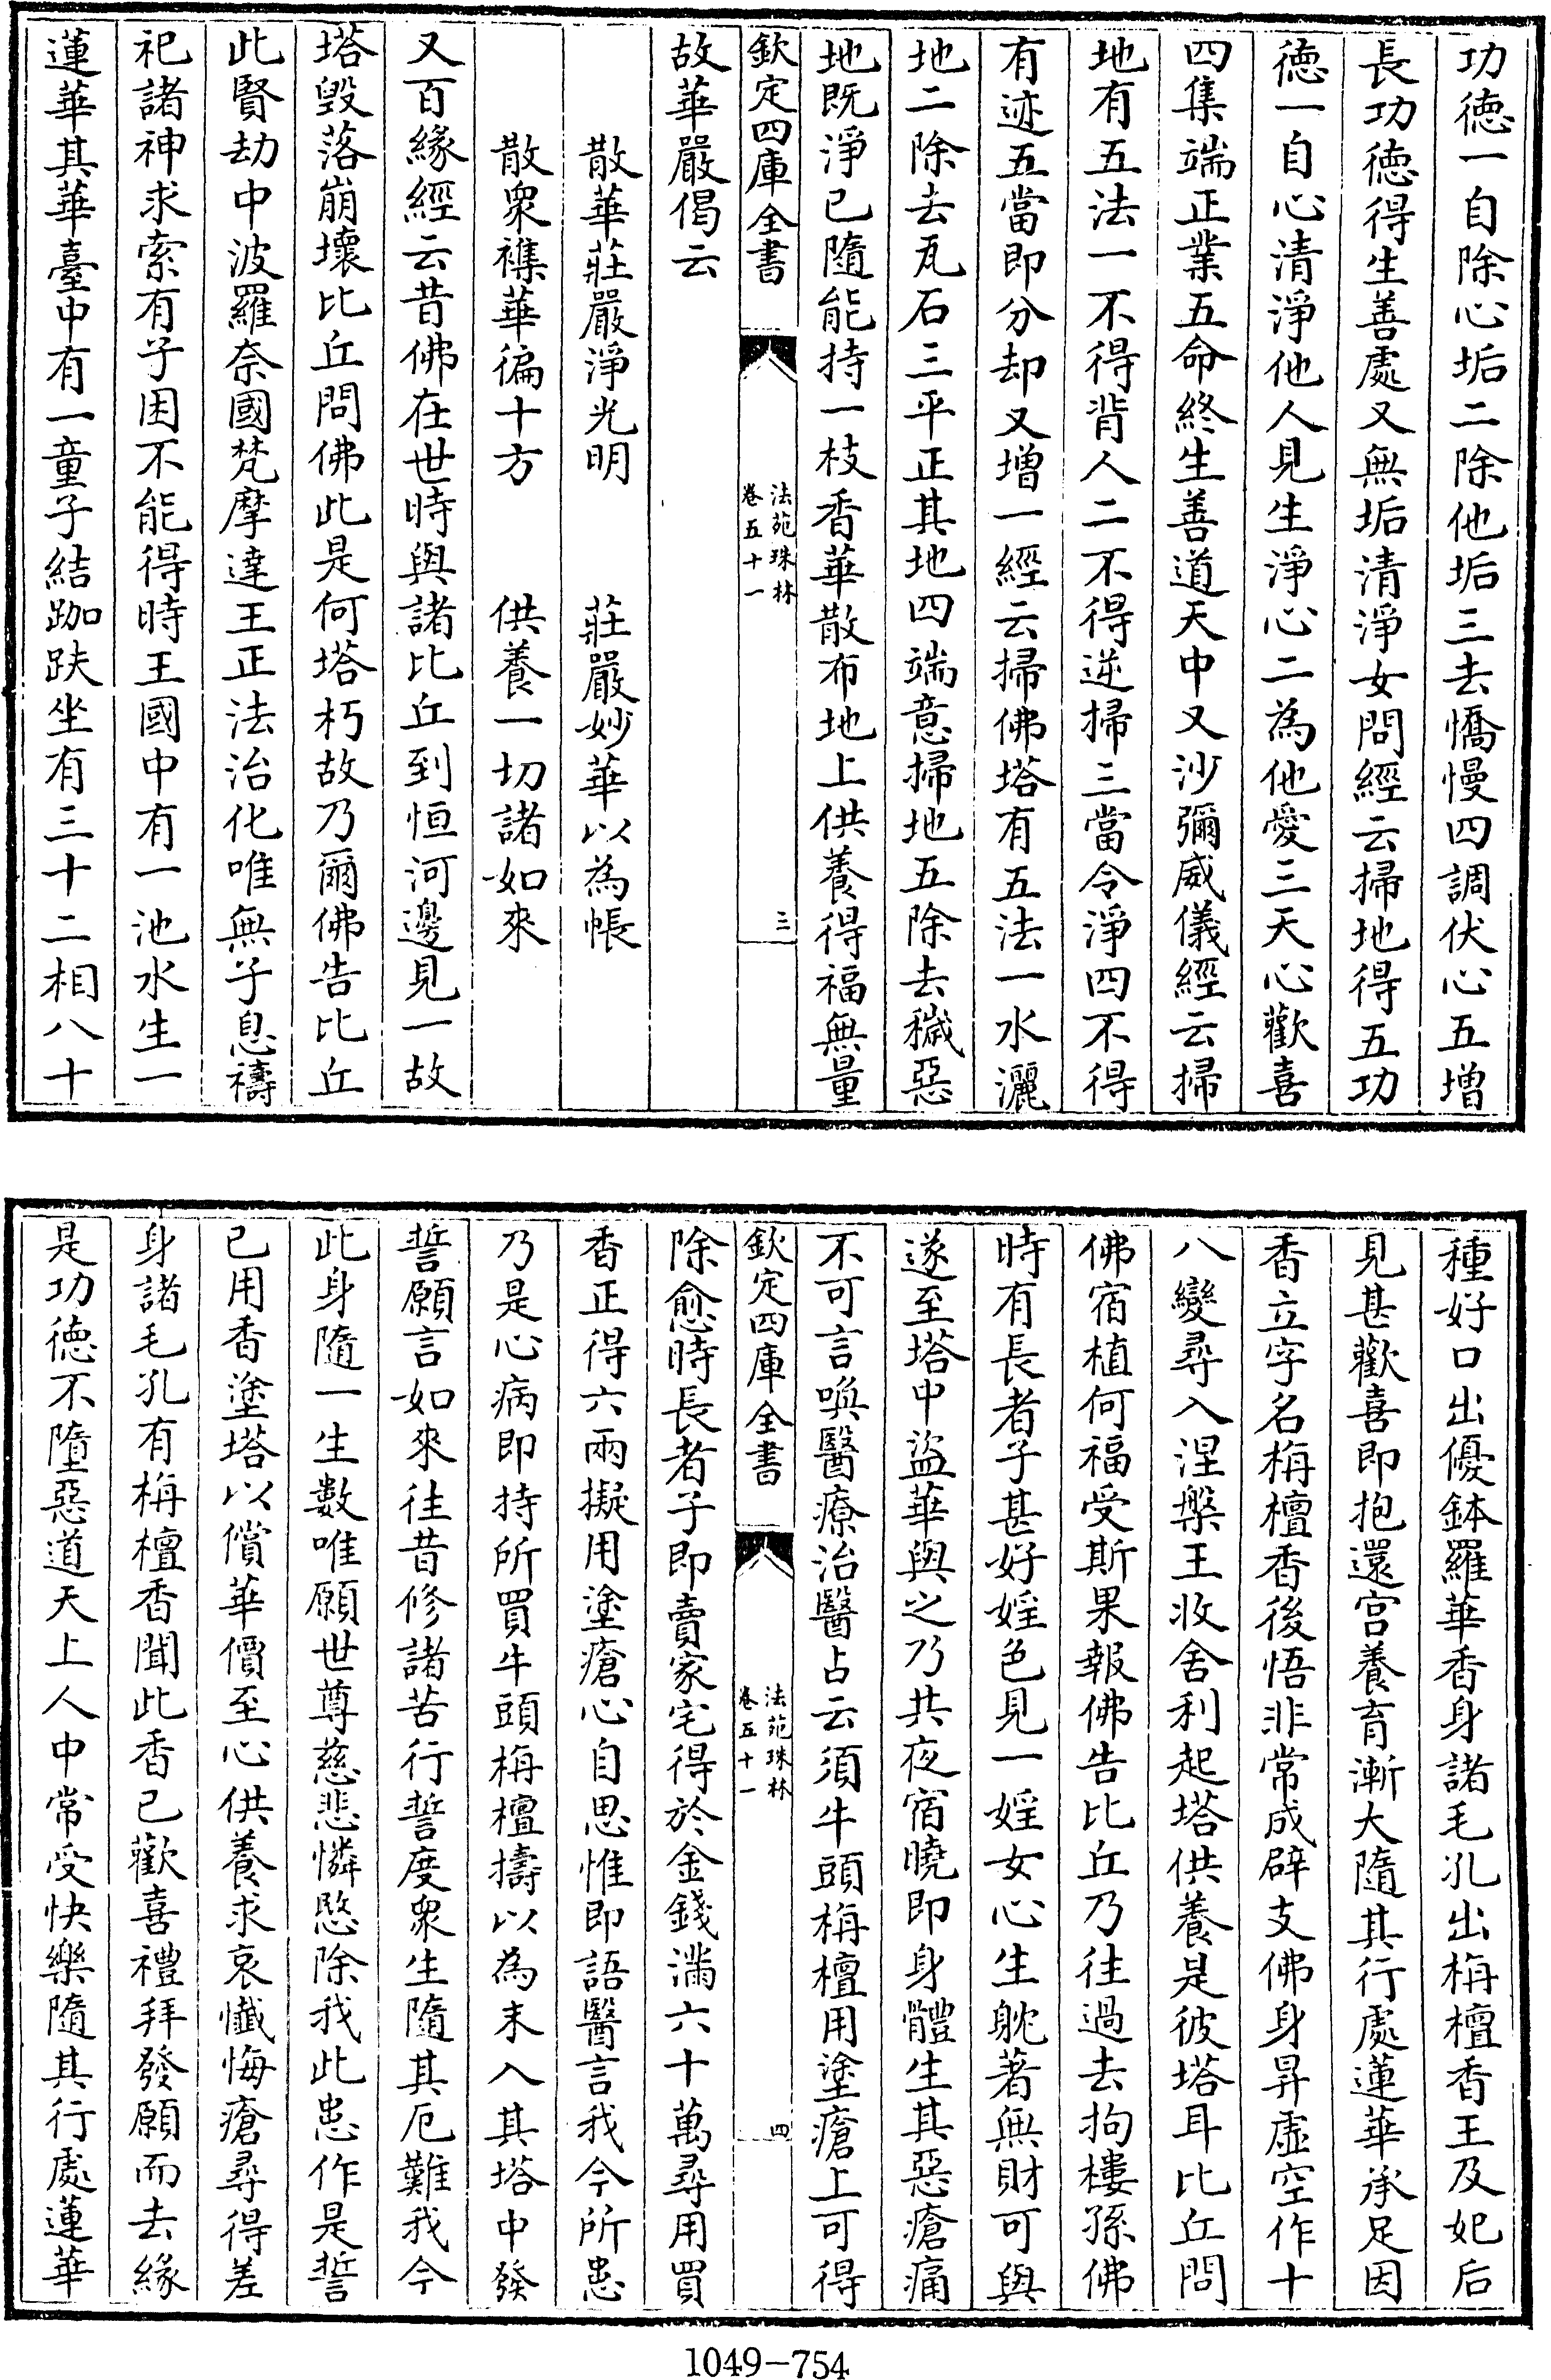 功徳一自除心垢二除他垢三去憍慢四調伏心五増
長功徳得生善處又無垢清淨女問經云掃地得五功
徳一自心清淨他人見生淨心二為他愛三天心歡喜
四集端正業五命終生善道天中又沙彌威儀經云掃
地有五法一不得背人二不得逆掃三當令淨四不得
有迹五當即分却又増一經云掃佛塔有五法一水灑
地二除去瓦石三平正其地四端意掃地五除去穢惡
地既淨已隨能持一枝香華散布地上供養得福無量
欽定四庫全書
法苑珠林
卷五十一
三
故華嚴偈云
散華莊嚴淨光明　莊嚴妙華以為帳
散衆襍華徧十方　供養一切諸如來
又百緣經云昔佛在世時與諸比丘到恒河邊見一故
塔毀落崩壞比丘問佛此是何塔朽故乃爾佛告比丘
此賢劫中波羅奈國梵摩達王正法治化唯無子息禱
祀諸神求索有子困不能得時王國中有一池水生一
蓮華其華臺中有一童子結跏趺坐有三十二相八十
種好口出優鉢羅華香身諸毛孔出栴檀香王及妃后
見甚歡喜即抱還宫養育漸大隨其行處蓮華承足因
香立字名栴檀香後悟非常成辟支佛身昇虚空作十
八變尋入涅槃王收舍利起塔供養是彼塔耳比丘問
佛宿植何福受斯果報佛告比丘乃往過去拘樓孫佛
時有長者子甚好婬色見一婬女心生躭著無財可與
遂至塔中盜華與之乃共夜宿曉即身體生其惡瘡痛
不可言喚醫療治醫占云須牛頭栴檀用塗瘡上可得
欽定四庫全書
法苑珠林
卷五十一
四
除愈時長者子即賣家宅得於金錢滿六十萬尋用買
香正得六兩擬用塗瘡心自思惟即語醫言我今所患
乃是心病即持所買牛頭栴檀擣以為末入其塔中發
誓願言如來往昔修諸苦行誓度衆生隨其厄難我今
此身隨一生數唯願世尊慈悲憐愍除我此患作是誓
已用香塗塔以償華價至心供養求哀懺悔瘡尋得差
身諸毛孔有栴檀香聞此香已歡喜禮拜發願而去緣
是功徳不墮惡道天上人中常受快樂隨其行處蓮華
1049-754